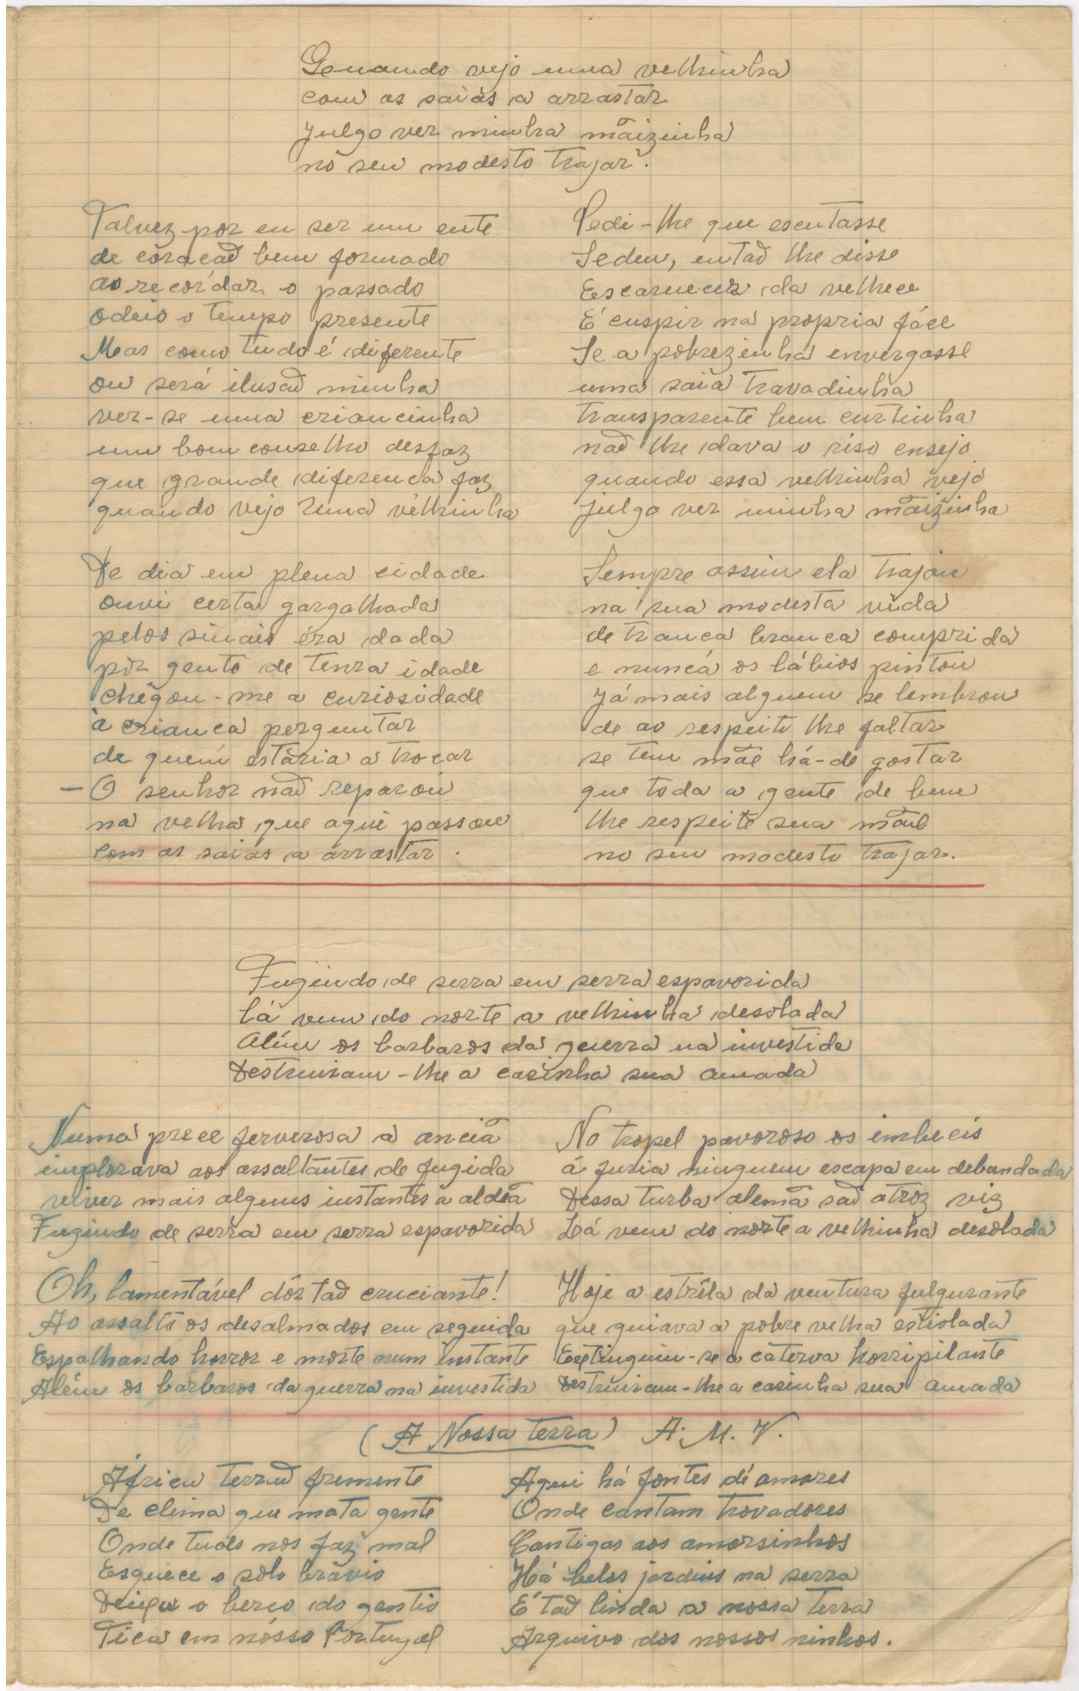 Quando vejo uma velhinha
com as saias a arrastar
julgo ver minha mãizinha
no seu modesto trajar.
Talvez por eu ser um ente
de coração bem formado
ao recordar o passado
odeio o tempo presente
Mas como tudo é diferente
ou será ilusão minha
ver-se uma criancinha
um bom conselho desfaz
que grande diferença faz
quando vejo uma velhinha
De dia em plena cidade
ouvi certa gargalhada
pelos sinais éra dada
por gente de tenra idade
chegou-me a curiosidade
à criança perguntar
de quem estaria a troçar
— O senhor não reparou
na velha que aqui passou
com as saias a arrastar.
Pedi-lhe que escutasse
Sedeu, então lhe disse
Escarnecer da velhece
É cuspir na propria fáce
Se a pobrezinha envergasse
uma saia travadinha
transparente bem curtinha
não lhe dava o riso ensejo
quando essa velhinha vejo
julgo ver minha mãizinha
Sempre assim ela trajou
na sua modesta vida
de trança branca comprida
e nunca os lábios pintou
Já mais alguem se lembrou
de ao respeito lhe faltar
se tem mãe há-de gostar
que toda a gente de bem
lhe respeite sua mãe
no seu modesto trajar.
Fugindo de serra em serra espavorida
lá vem do norte a velhinha desolada
Além os barbaros da guerra na investida
Destruiram-lhe a casinha sua amada
Numa prece ferverosa a anciã
implorava aos assaltantes de fugida
viver mais alguns instantes a aldeã
Fugindo de serra em serra espavorida
Oh, lamentável dôr tão cruciante!
Ao assalto os desalmados em seguida
Espalhando horror e morte num instante
Além os barbaros da guerra na investida
No tropel pavoroso os imbecis
á furia ninguem escapa em debandada
Dessa turba alemã são atroz viz
Lá vem do norte a velhinha desolada
Hoje a estrêla da ventura fulgurante
que guiava a pobre velha estiolada
Extinguiu-se a caterva horripilante
Destruiram-lhe a casinha sua amada
(A Nossa terra) A. M. V.
África terrão fremente
De clima que mata gente
Onde tudo nos faz mal
Esquece o solo brávio
Deixa o berço do gentio
Fica em nósso Portugal
Aqui há fontes de amores
Onde cantam trovadores
Cantigas aos amorsinhos
Há belos jardins na serra
É tão linda a nossa terra
Arquivo dos nossos ninhos.